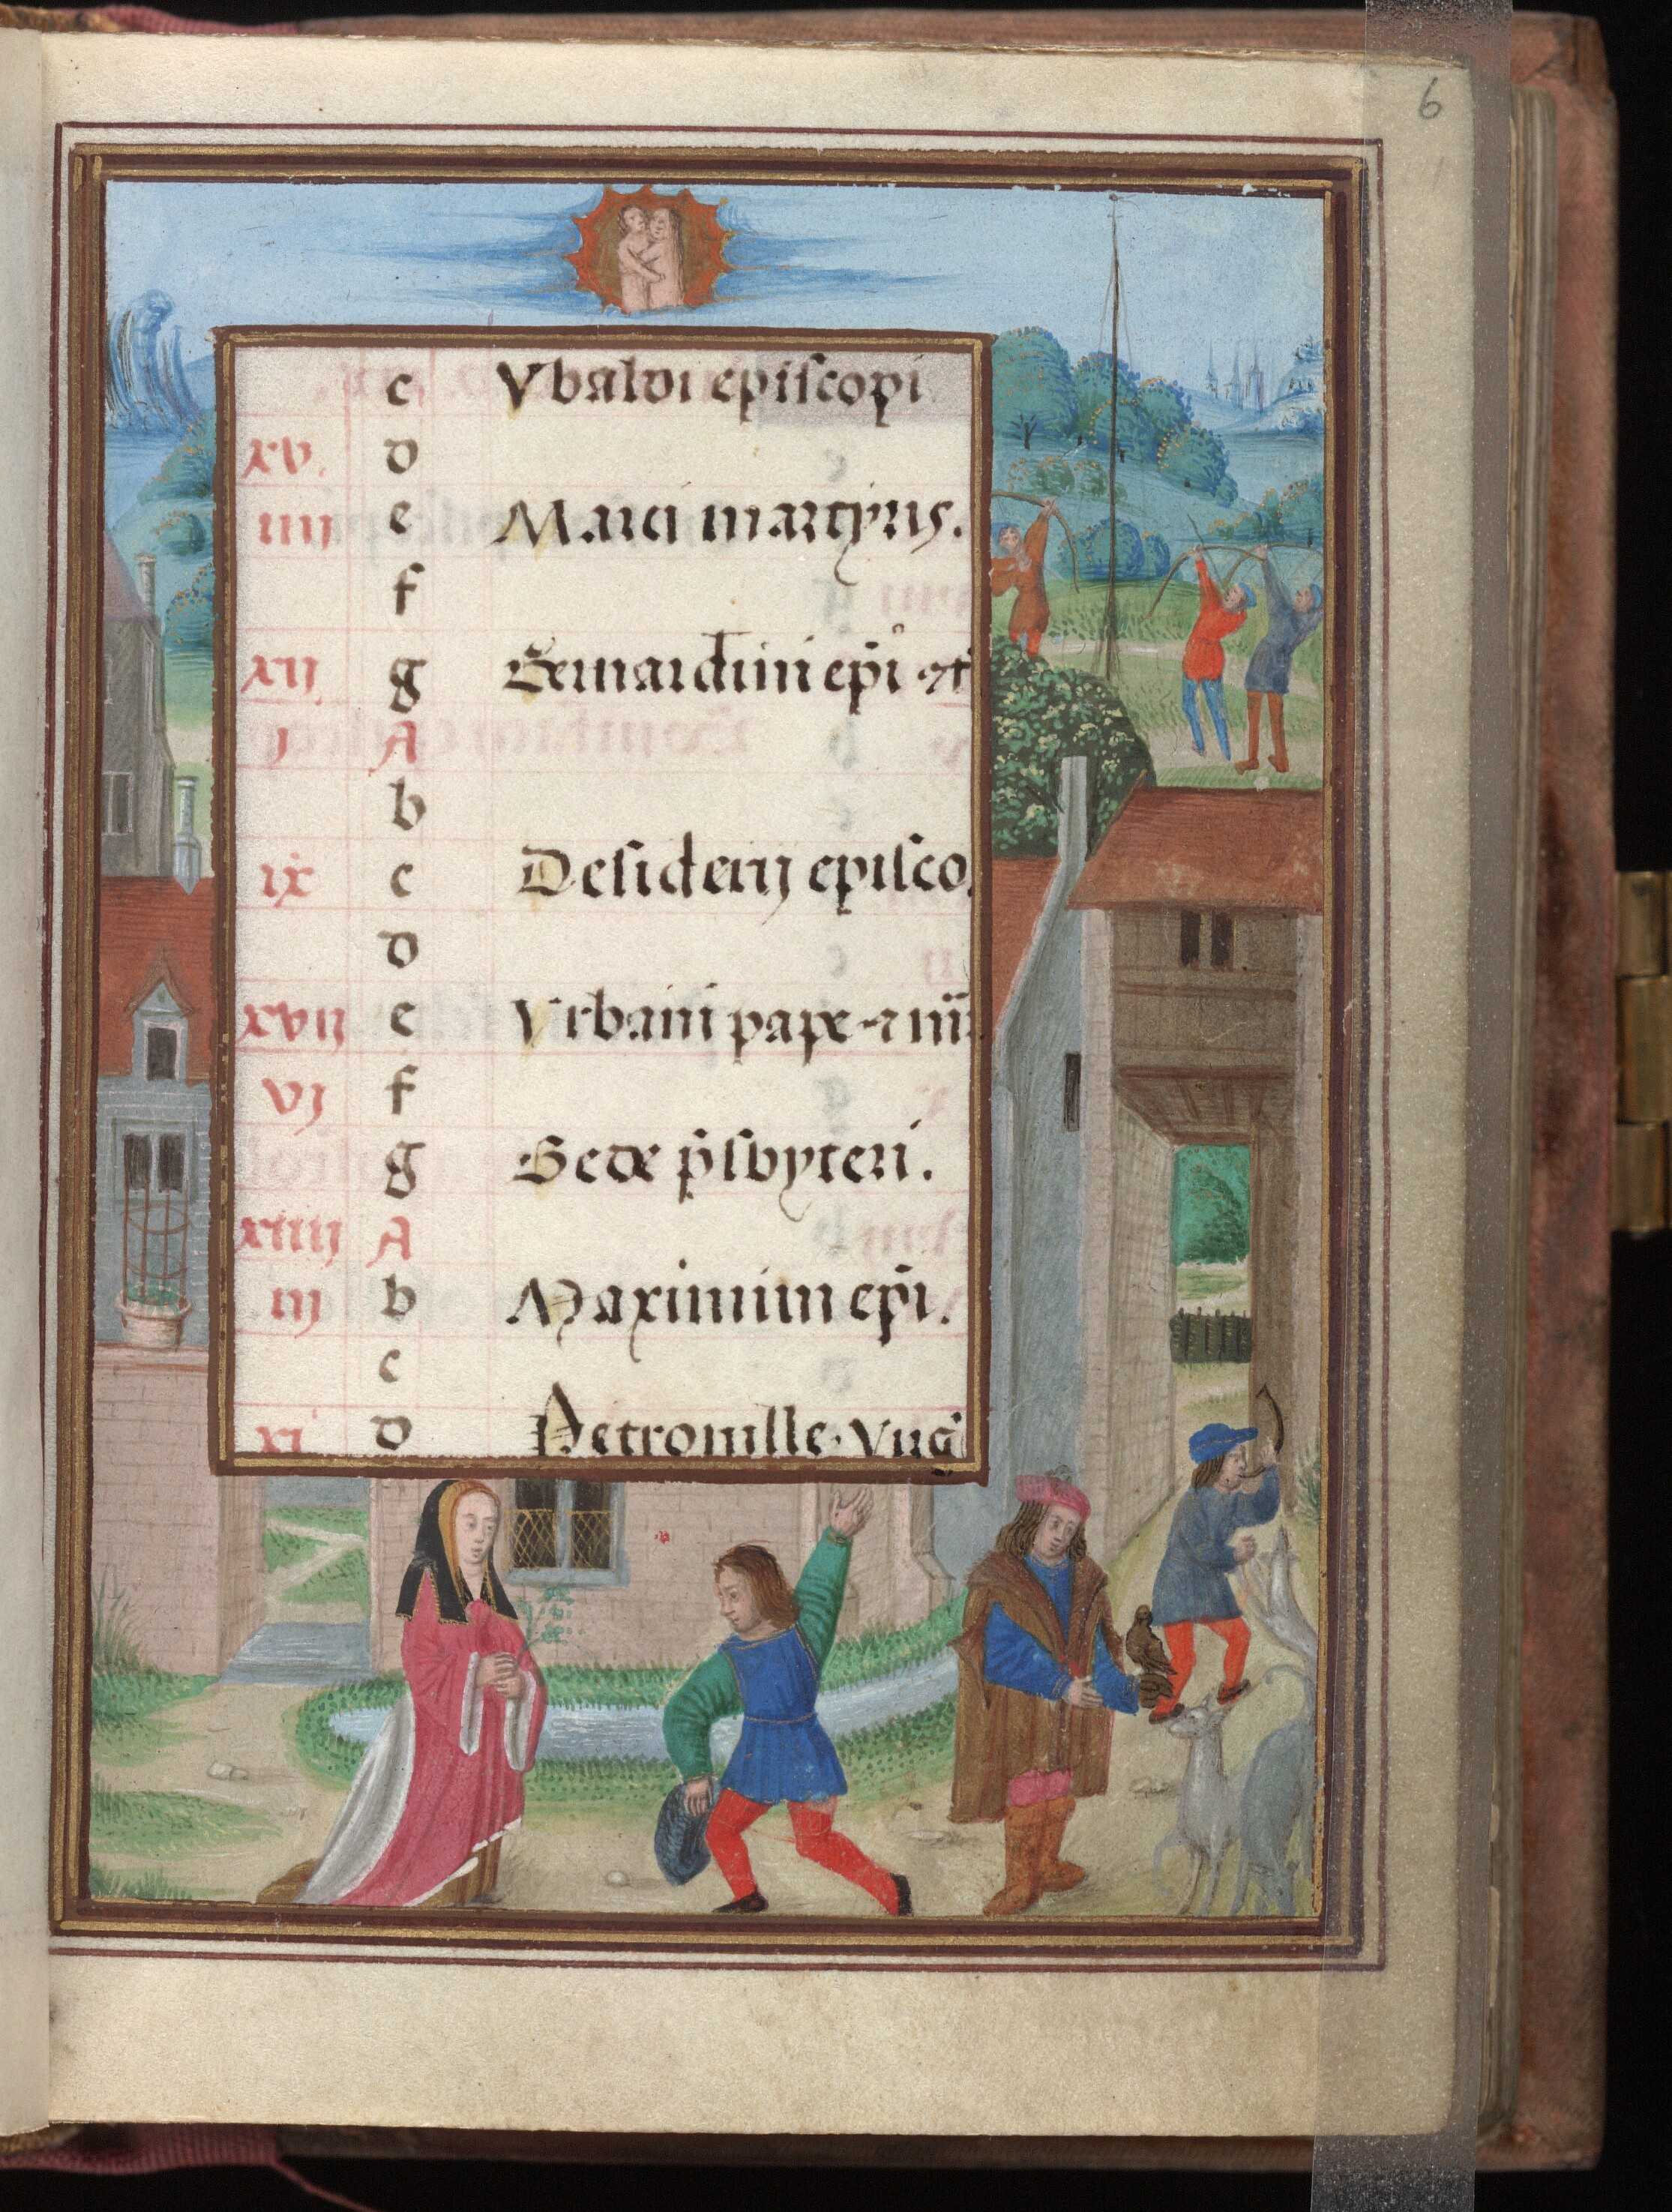 6
c Vbaldi episcopi
xv. d
iiij e Marci martyris.
f
xij g Bernardini ep̄i ⁊ cf̄
j A
b
ix c Desiderij episco.
d
xvij e Vrbani pape ⁊ m̄
vj f
g Bede p̄sbyteri.
xiiij A
iij b Maximini ep̄i.
c
xi d Petronille. virḡ